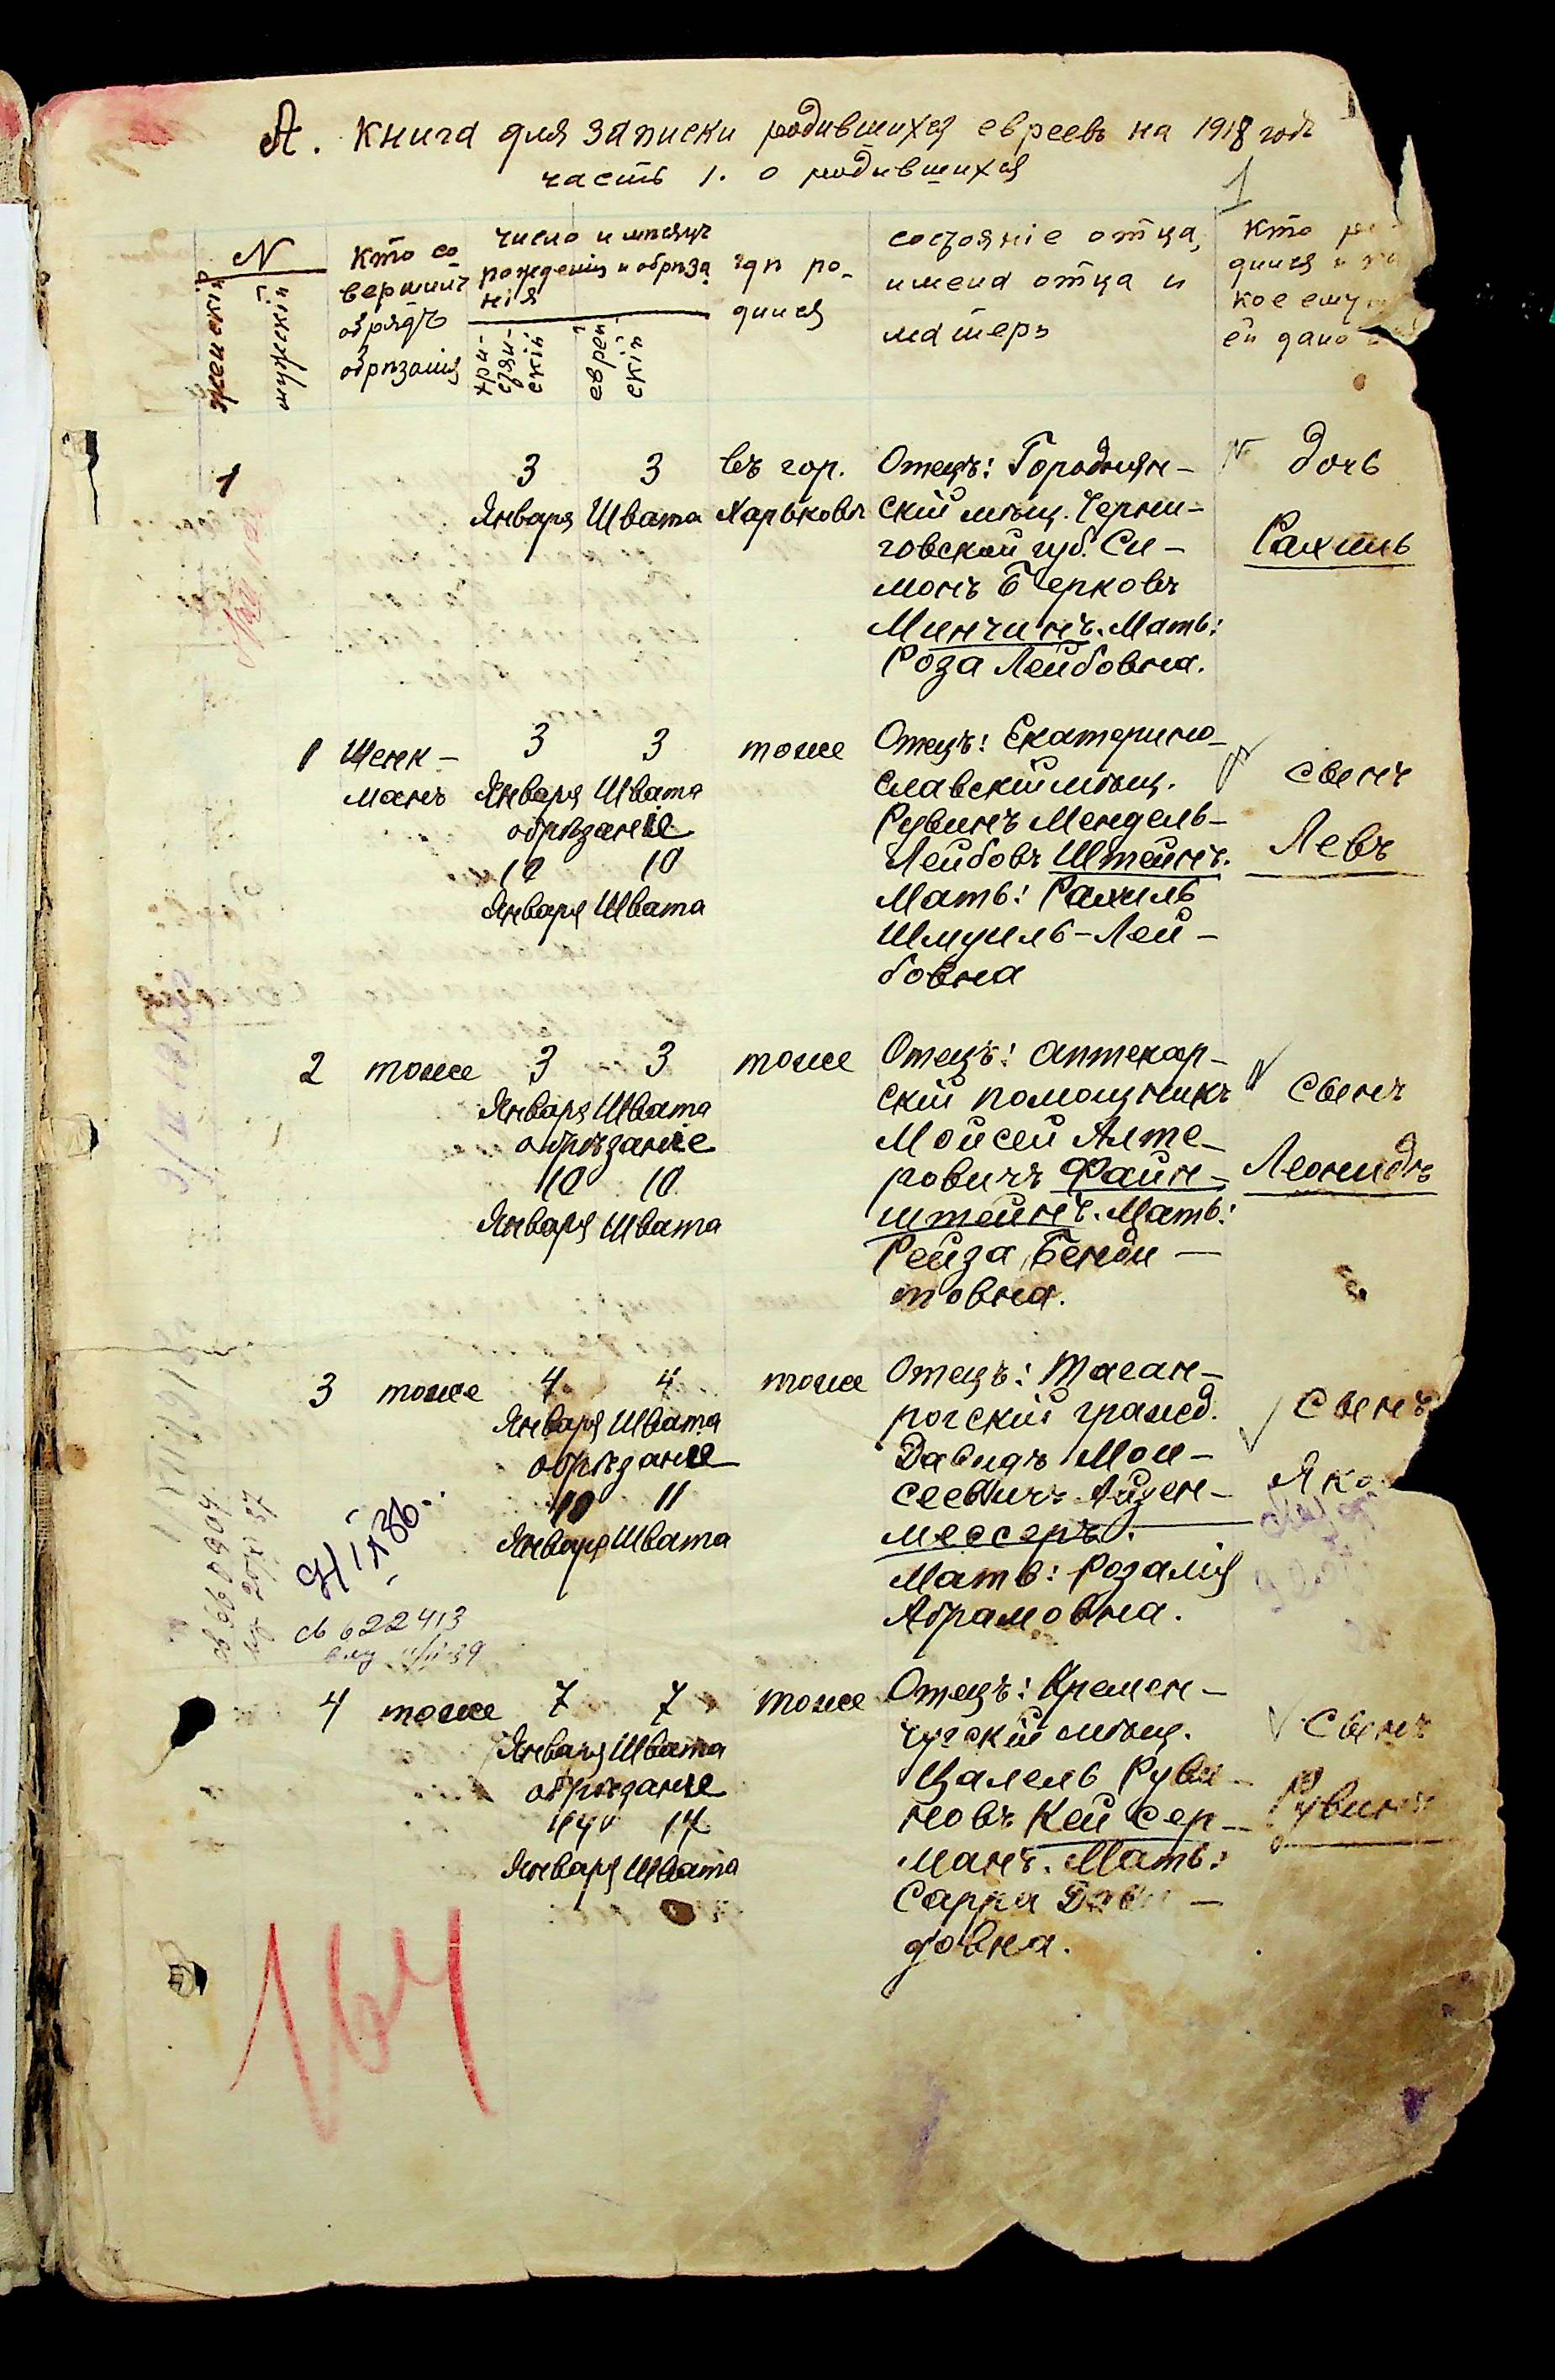 А. Книга для записки родившихся евреевъ на 1918 годъ
часть 1. о родившихся
1
N
женскій
мужскій
кто со-
вершилъ
обрядъ
обрѣзанія
число и мѣсяцъ
рожденія и обрѣза
нія
хри-
стіян-
скій
еврей-
скій
гдѣ ро-
дился
состояніе отца,
имена отца и
матери
кто
дился и
кое ему
ей дано
1
3
Января
3
Швата
въ гор.
Харьковѣ
Отецъ: Городнян-
скій мѣщ. Черни-
говской губ. Си-
монъ Берковъ
Минчинъ. Мать:
Роза Лейбовна.
дочь
Рахиль
1
Шенк-
манъ
3
Января
3
Швата
обрѣзаніе
10
Января
10
Швата
тоже
Отецъ: Екатерино-
славскій мѣщ.
Рувинъ Мендель-
Лейбовъ Штейнъ.
Мать: Рахиль
Шмуиль-Лей-
бовна
сынъ
Левъ
2
тоже
3
Января
3
Швата
обрѣзаніе
10
Января
10
Швата
тоже
Отецъ: аптекар-
скій помощникъ
Мойсей Алте-
ровичъ Файн-
штейнъ. Мать:
Рейза Бенди-
товна.
сынъ
Леонидъ
3
тоже
4
Января
4
Швата
обрѣзаніе
Января
11
Швата
тоже
Отецъ: Таган-
рогскій гражд.
Давидъ Мои-
сеевичъ Айзен-
мессеръ.
Мать: Розалія
Абрамовна.
сынъ
Яко
св 622413
4
тоже
7
Января
7
Швата
обрѣзаніе
14
Января
14
Швата
тоже
Отецъ: Кремен-
чугскій мѣщ.
Цалель Руви-
новъ Кейсер-
манъ. Мать:
Сарра Дави-
довна.
сынъ
Рувинъ
164